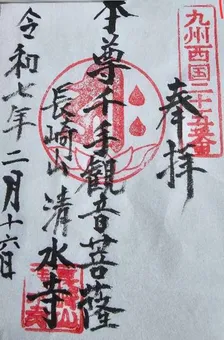 奉拝
九州西国二十五番
本尊千手觀音菩薩
長崎山 清水寺
令和七年二月十六日